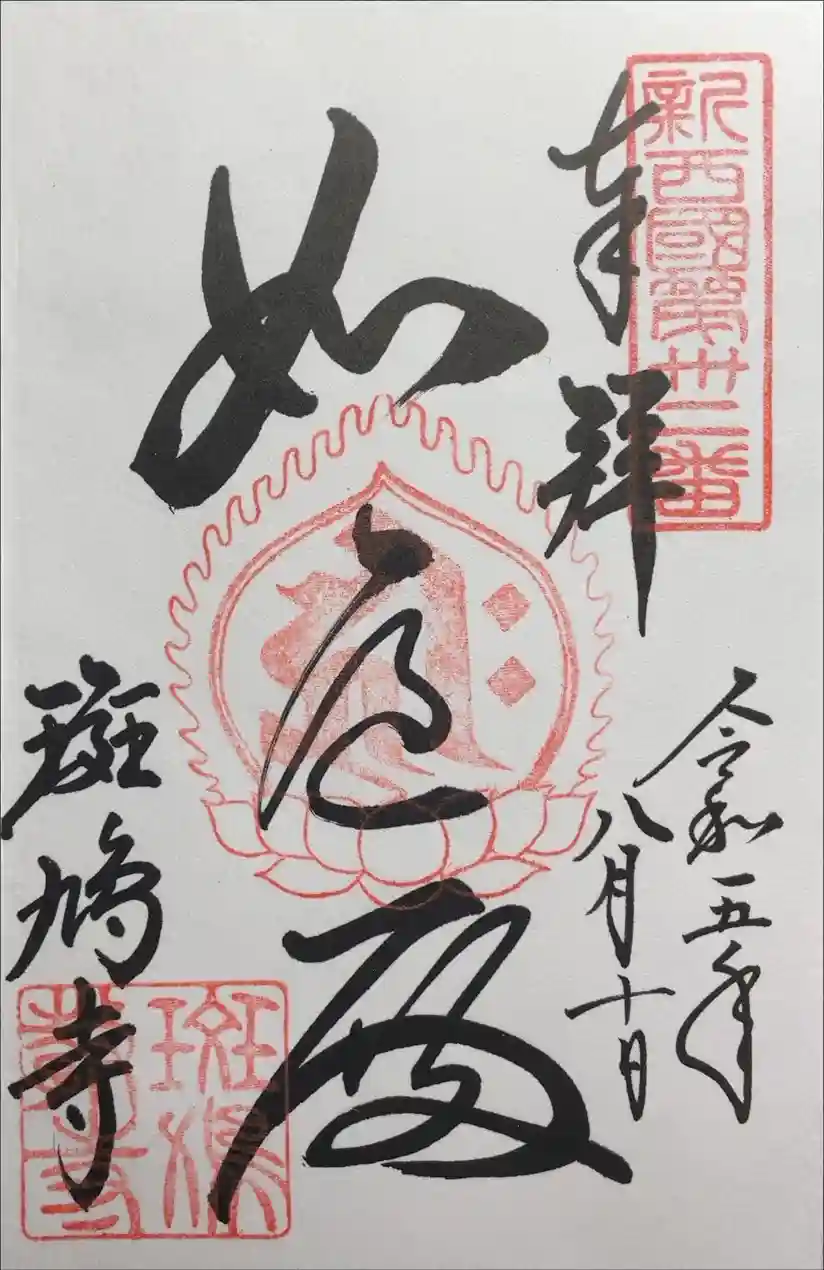 新西國第卅二番
奉拝
令和五年
八月十日
如意殿
斑鳩寺
斑鳩
寺